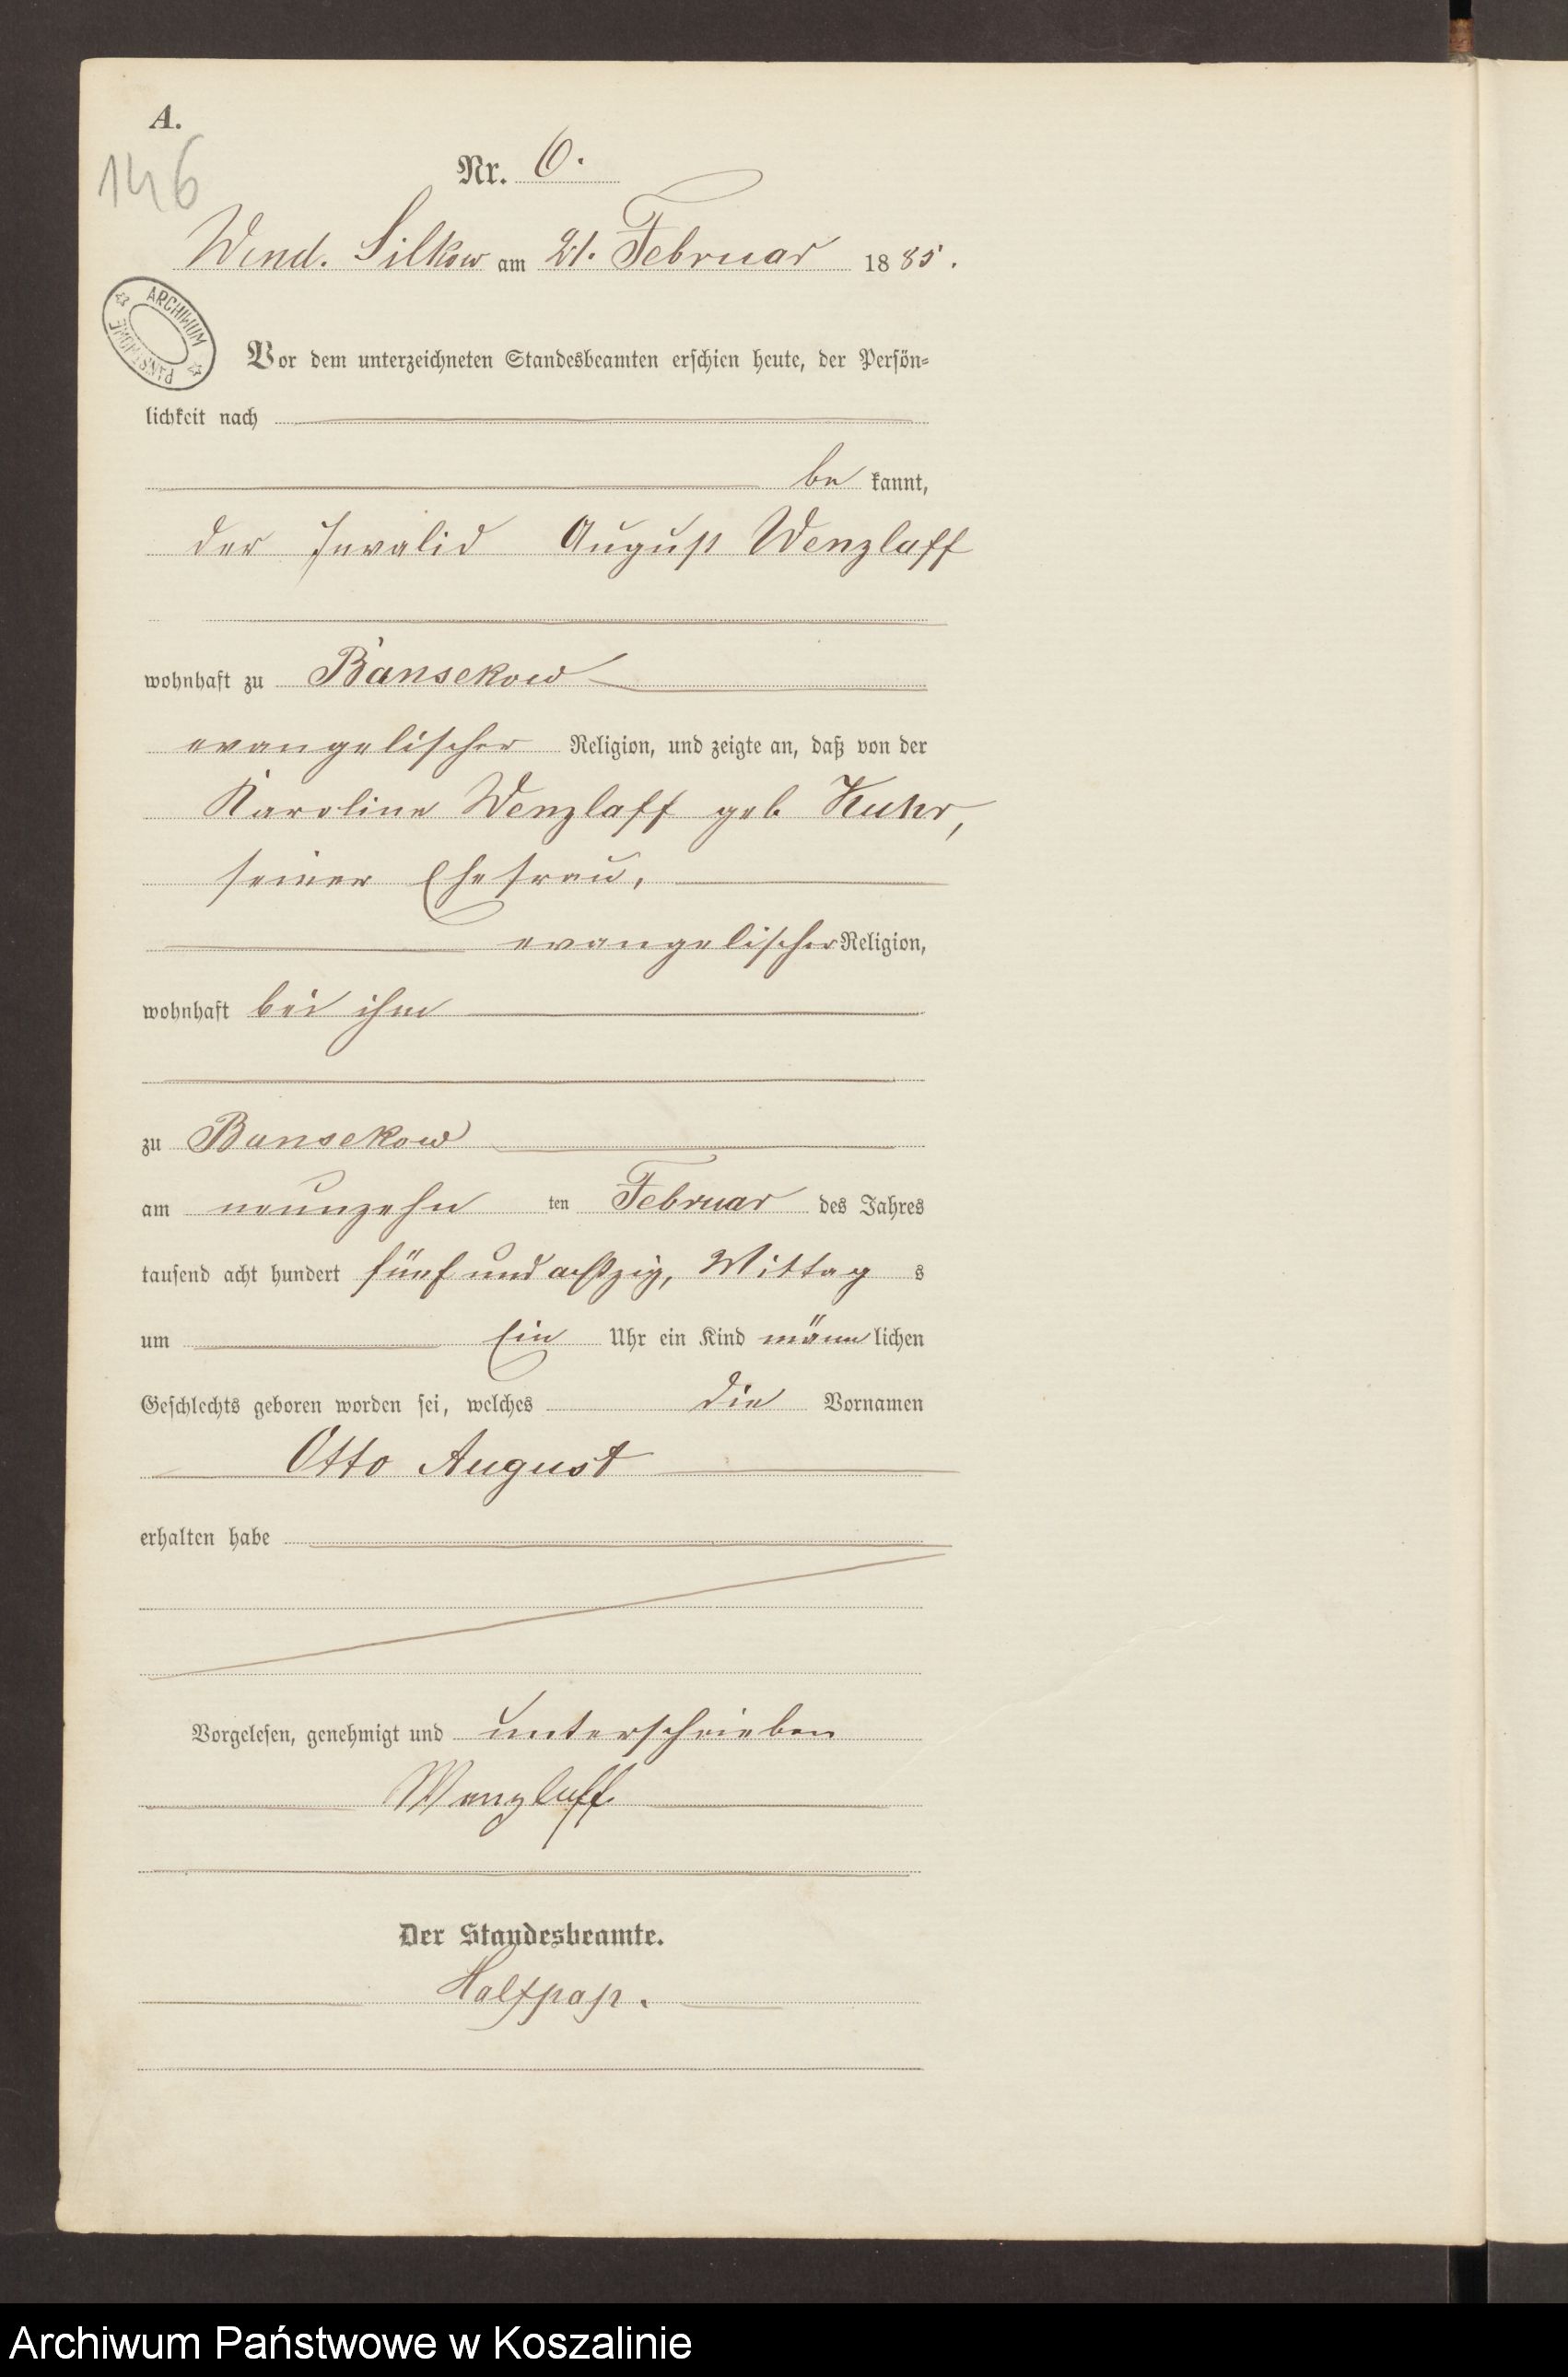 A.
146
Nr. 6.
Wend. Silkow am 21. Februar 1885.
ARCHIWUM PAŃSTWOWE
Vor dem unterzeichneten Standesbeamten erschien heute, der Persön-
lichkeit nach
be kannt,
der Invalid August Wenzlaff
wohnhaft zu Bansekow
evangelischer Religion, und zeigte an, daß von der
Karoline Wenzlaff geb Kuhr,
seiner Ehefrau,
evangelischer Religion,
wohnhaft bei ihm
zu Bansekow
am neunzehn ten Februar des Jahres
tausend acht hundert fünf und achtzig, Mittag s
um Ein Uhr ein Kind männlichen
Geschlechts geboren worden sei, welches die Vornamen
Otto August
erhalten habe
Vorgelesen, genehmigt und unterschrieben
Wenzlaff
Der Standesbeamte.
Halfpap.
Archiwum Państwowe w Koszalinie